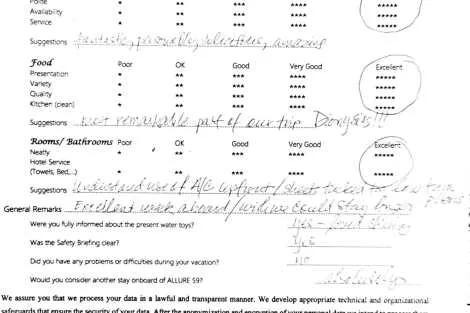 Polite * ** *** **** *****
Availability * ** *** **** *****
Service * ** *** **** *****
Suggestions fantastic, personally, amazing
Food Poor OK Good Very Good Excellent
Presentation * ** *** **** *****
Variety * ** *** **** *****
Quality * ** *** **** *****
Kitchen (clean) * ** *** **** *****
Suggestions most remarkable part of our trip Dionysis!!!
Rooms/ Bathrooms Poor OK Good Very Good Excellent
Neatly * ** *** **** *****
Hotel Service
(Towels, Bed,...) * ** *** **** *****
Suggestions Understand use of A/C upfront / sheet
General Remarks Excellent week aboard / wish we could stay longer
Were you fully informed about the present water toys? yes -
Was the Safety Briefing clear? yes
Did you have any problems or difficulties during your vacation? no
Would you consider another stay onboard of ALLURE 59? absolutely
We assure you that we process your data in a lawful and transparent manner. We develop appropriate technical and organizational
safeguards that ensure the security of your data. After the anonymization and encryption of your personal data we intend to